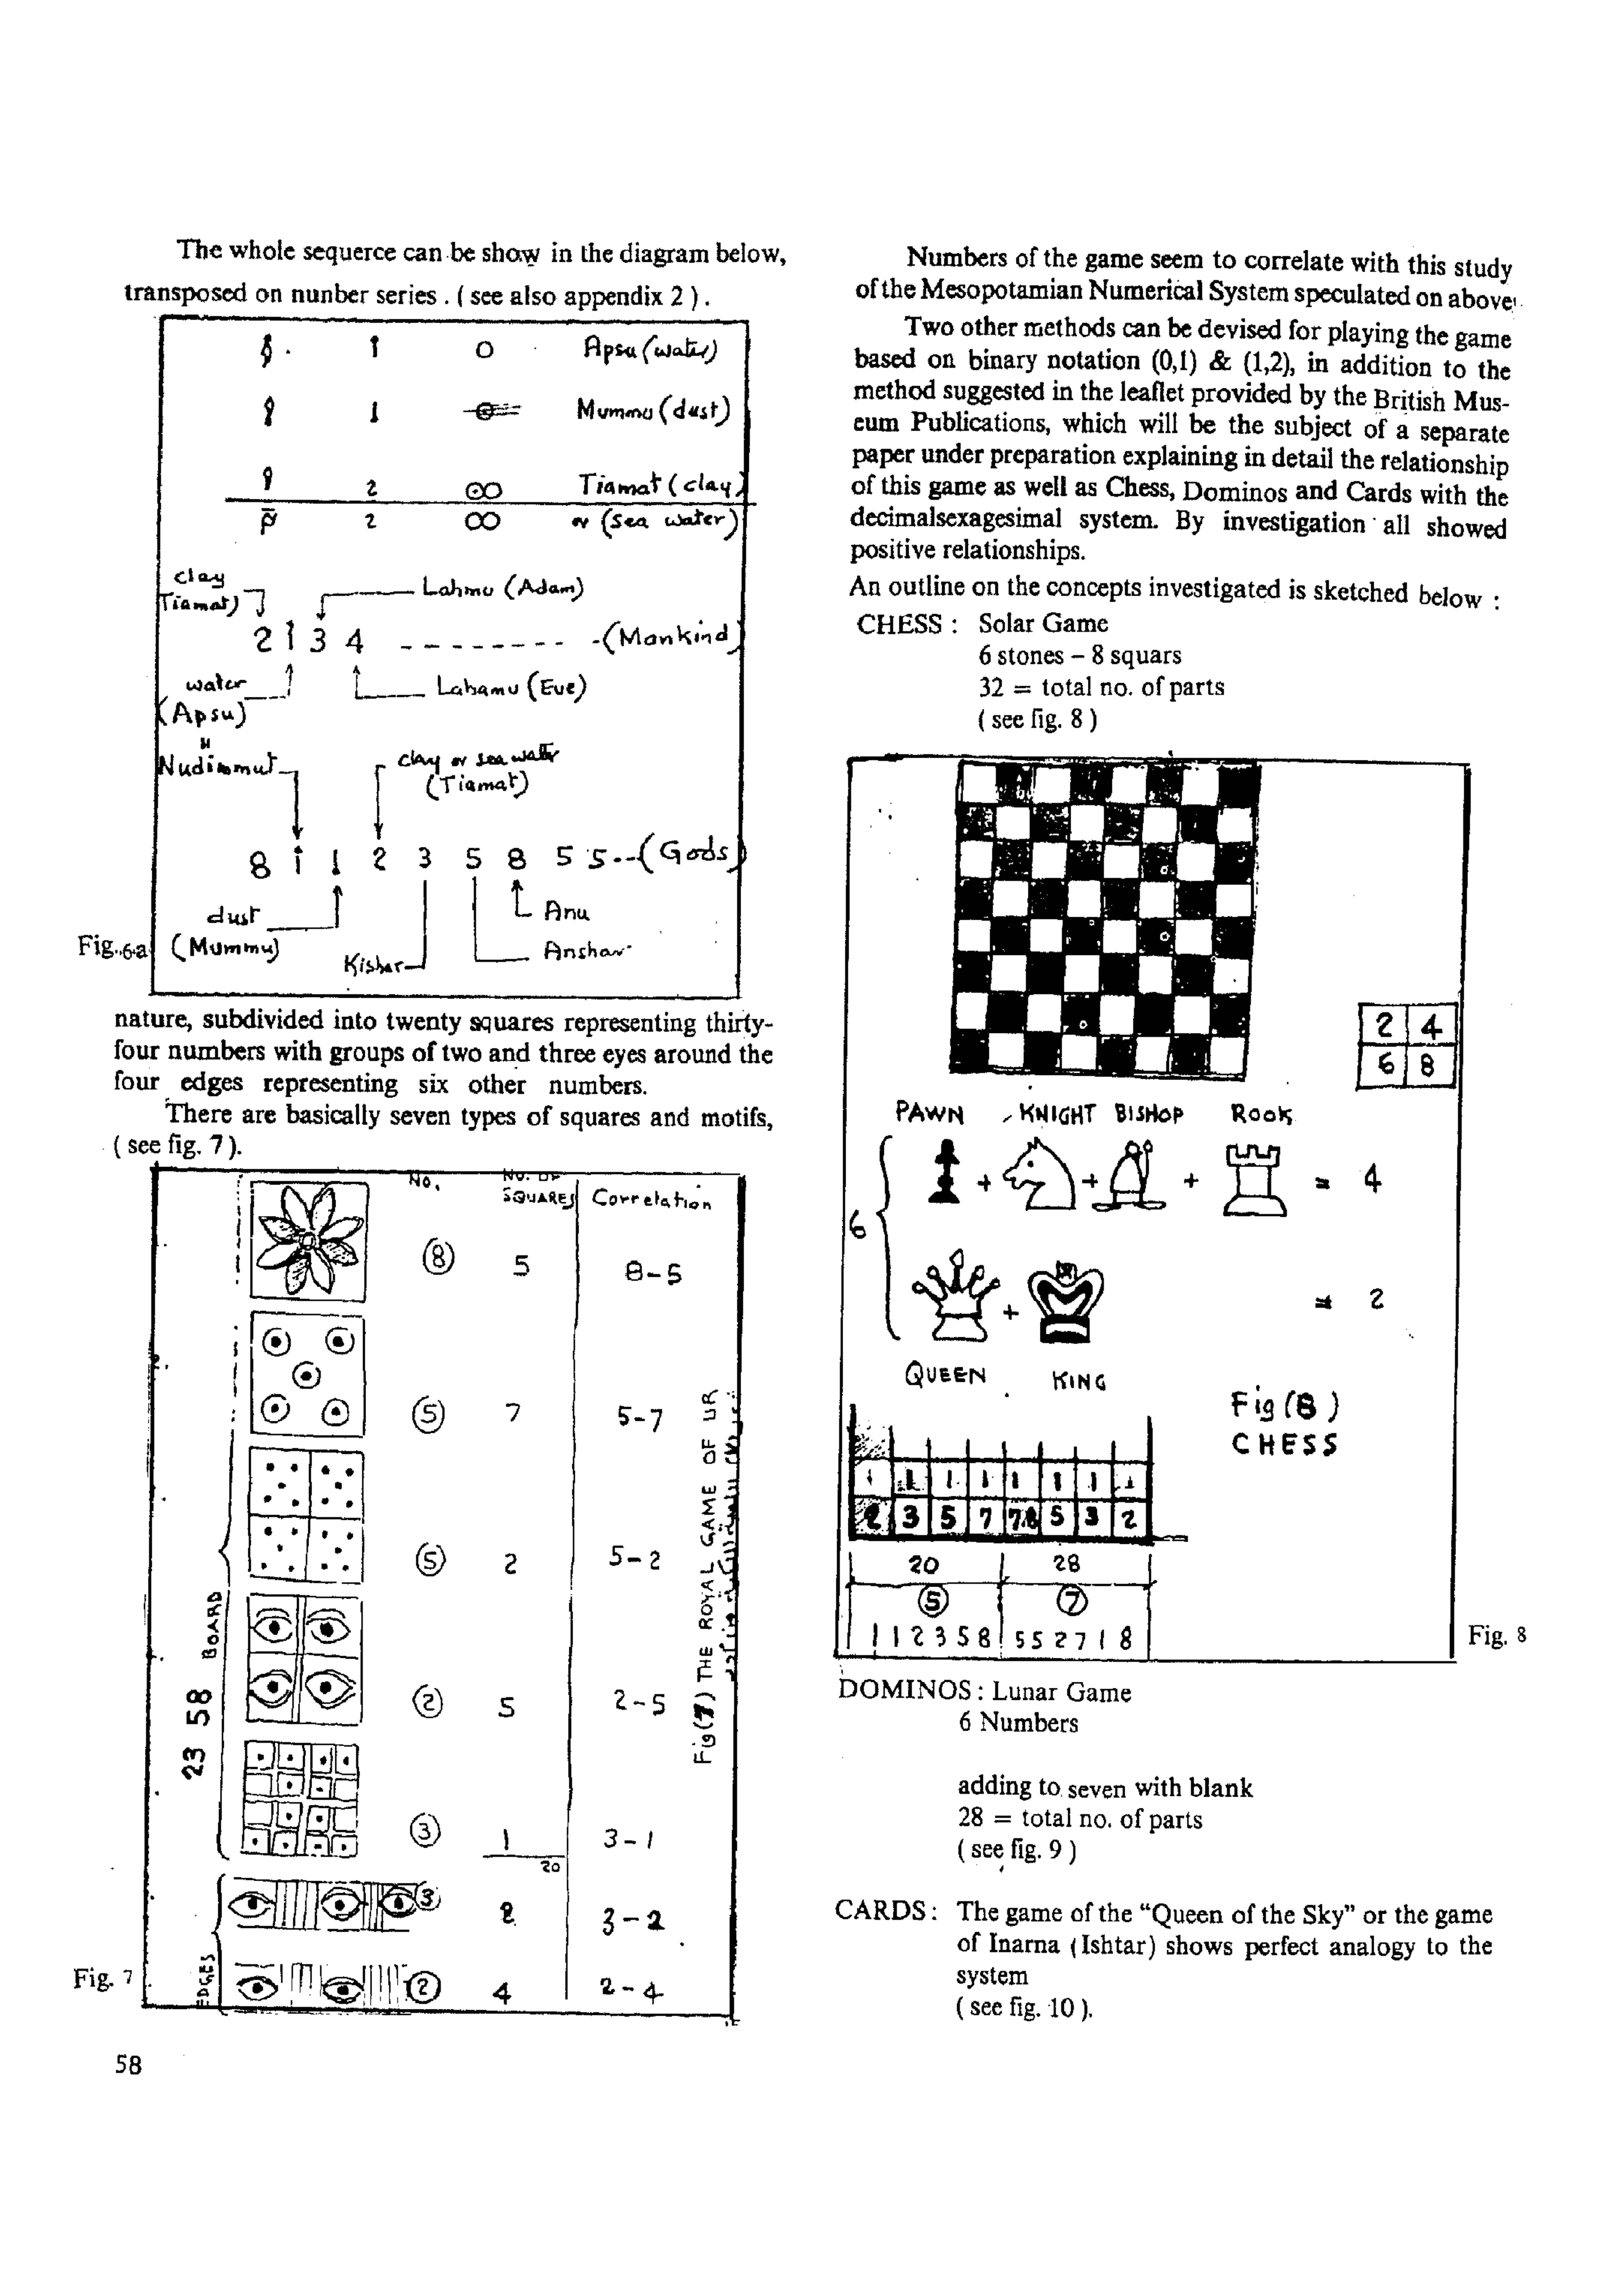 The whole sequerce can be show in the diagram below,
transposed on nunber series . ( see also appendix 2 ) .
1 0 Apsu (water)
1 Mummu (dust)
2 ∞ Tiamat (clay)
2 ∞ or (sea water)
clay
Tiamat)
Lahmu (Adam)
2 1 3 4 - - - - - - - - - (Mankind)
water
(Apsu)
Lahamu (Eve)
Nudimmut
clay or sea water
(Tiamat)
8 1 1 2 3 5 8 5 5 -- (Gods)
dust
(Mummu)
Anu
Kishar
Anshar
Fig. 6.a
nature, subdivided into twenty squares representing thirty-
four numbers with groups of two and three eyes around the
four edges representing six other numbers.
There are basically seven types of squares and motifs,
( see fig. 7 ).
No. NO. OF
SQUARES Correlation
8 5 8-5
5 7 5-7
5 2 5-2
2 5 2-5
3 1 3-1
20
3 2 3-2
2 4 2-4
23 58 BOARD
EDGES
Fig (7) THE ROYAL GAME OF UR
Fig. 7
58
Numbers of the game seem to correlate with this study
of the Mesopotamian Numerical System speculated on above
Two other methods can be devised for playing the game
based on binary notation (0,1) & (1,2), in addition to the
method suggested in the leaflet provided by the British Mus-
eum Publications, which will be the subject of a separate
paper under preparation explaining in detail the relationship
of this game as well as Chess, Dominos and Cards with the
decimalsexagesimal system. By investigation all showed
positive relationships.
An outline on the concepts investigated is sketched below :
CHESS : Solar Game
6 stones – 8 squars
32 = total no. of parts
( see fig. 8 )
2 4
6 8
PAWN KNIGHT BISHOP ROOK
+ + + = 4
6
+ = 2
QUEEN KING
Fig (8)
CHESS
1 1 1 1 1 1 1 1
2 3 5 7 7.8 5 3 2
20 28
5 7
1 1 2 3 5 8 5 5 2 7 1 8
Fig. 8
DOMINOS : Lunar Game
6 Numbers
adding to seven with blank
28 = total no. of parts
( see fig. 9 )
CARDS : The game of the “Queen of the Sky” or the game
of Inarna (Ishtar) shows perfect analogy to the
system
( see fig. 10 ).